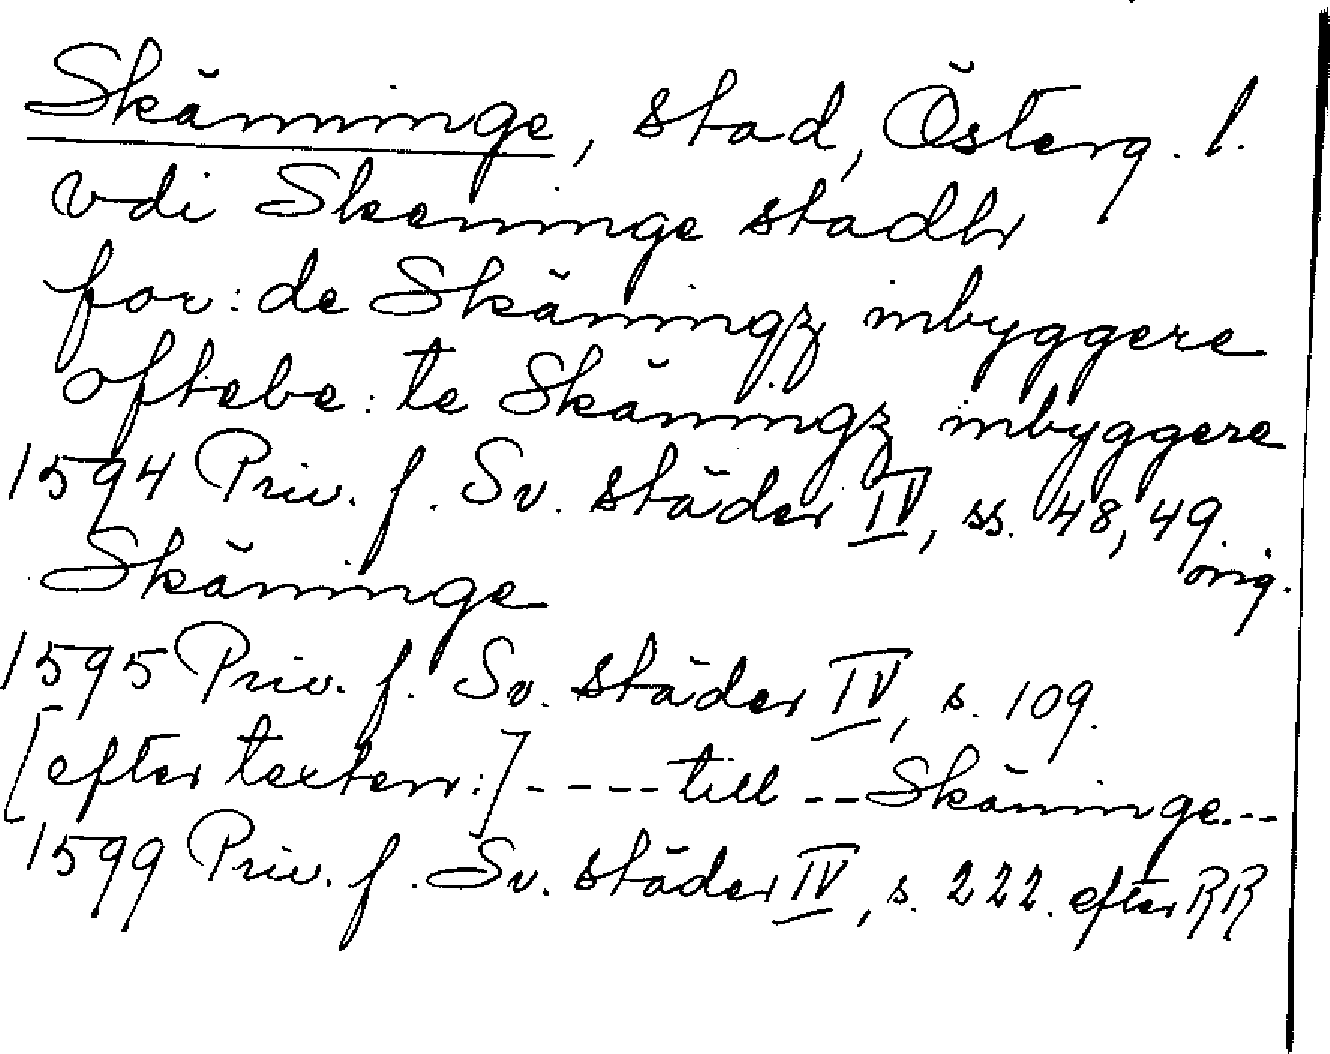 Skänninge, stad, Österg. l.
vdi Skeninge stadh
for:de Skäningz inbyggere
oftebe:te Skäningz inbyggere
1594 Priv. f. Sv. städer IV, ss. 48, 49.
orig.
Skäninge
1595 Priv. f. Sv. städer IV, s. 109.
[efter texten:] ---- till -- Skäninge---
1599 Priv. f. Sv. städer IV, s. 222. efter RR